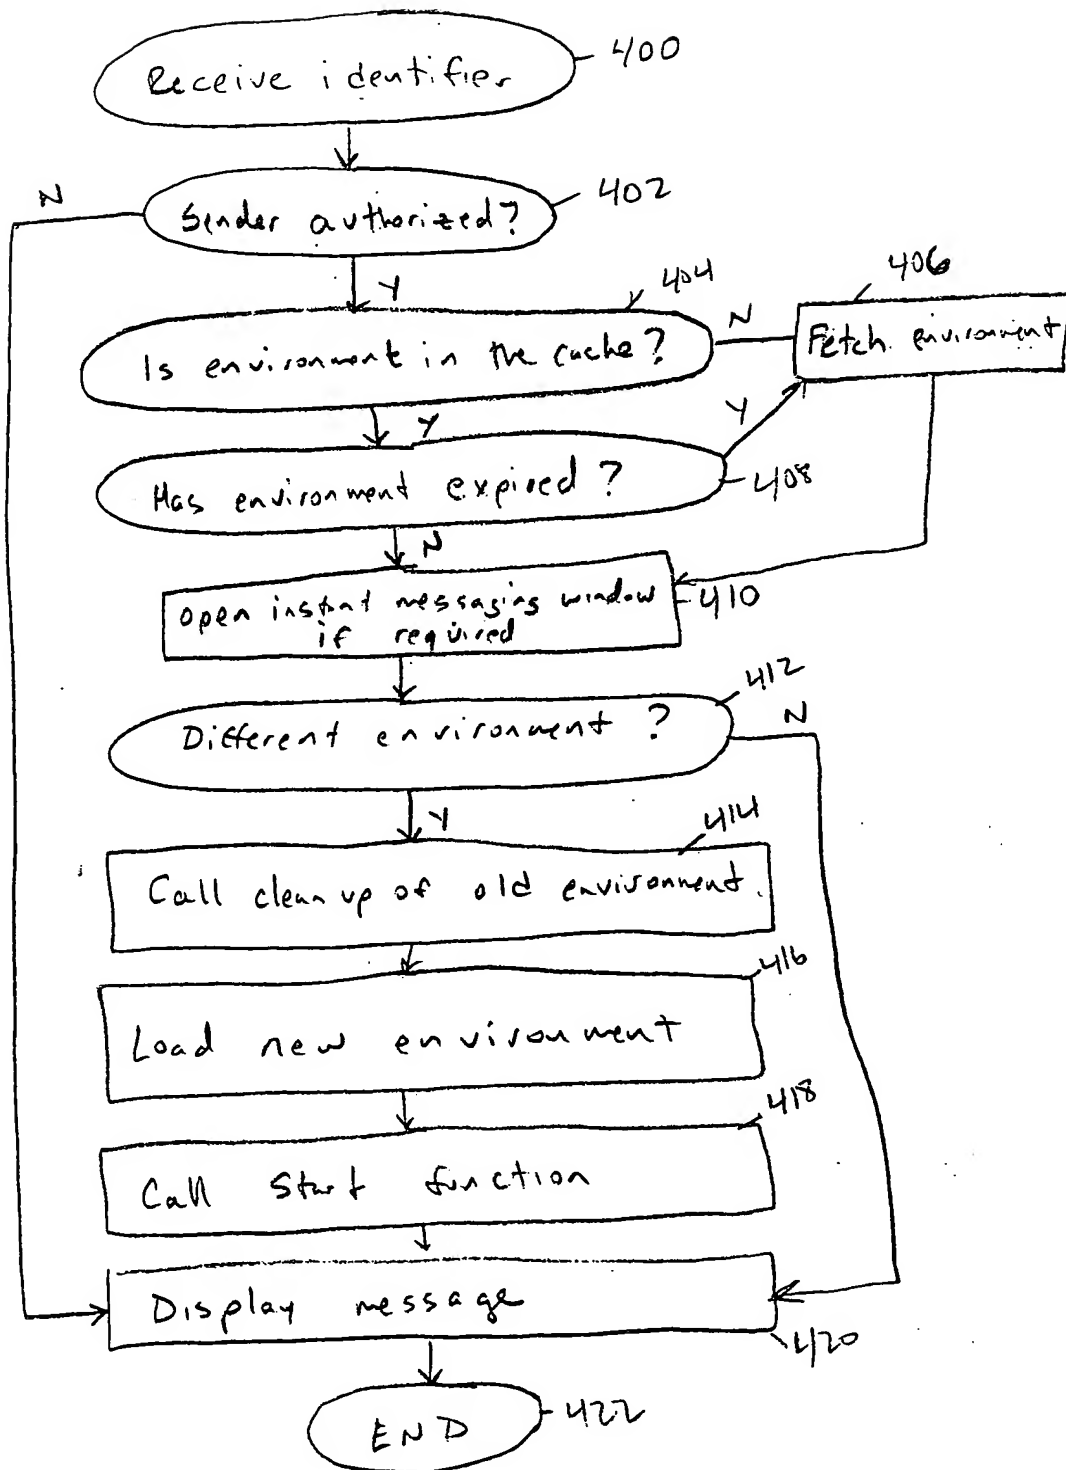 Receive identifier
400
N
Sender authorized?
402
Y
404
406
Is environment in the cache?
N
Fetch environment
Y
Y
Has environment expired?
408
N
open instant messaging window
if required
410
412
Different environment ?
N
Y
414
Call cleanup of old environment.
416
Load new environment
418
Call Start function
Display message
420
END
422